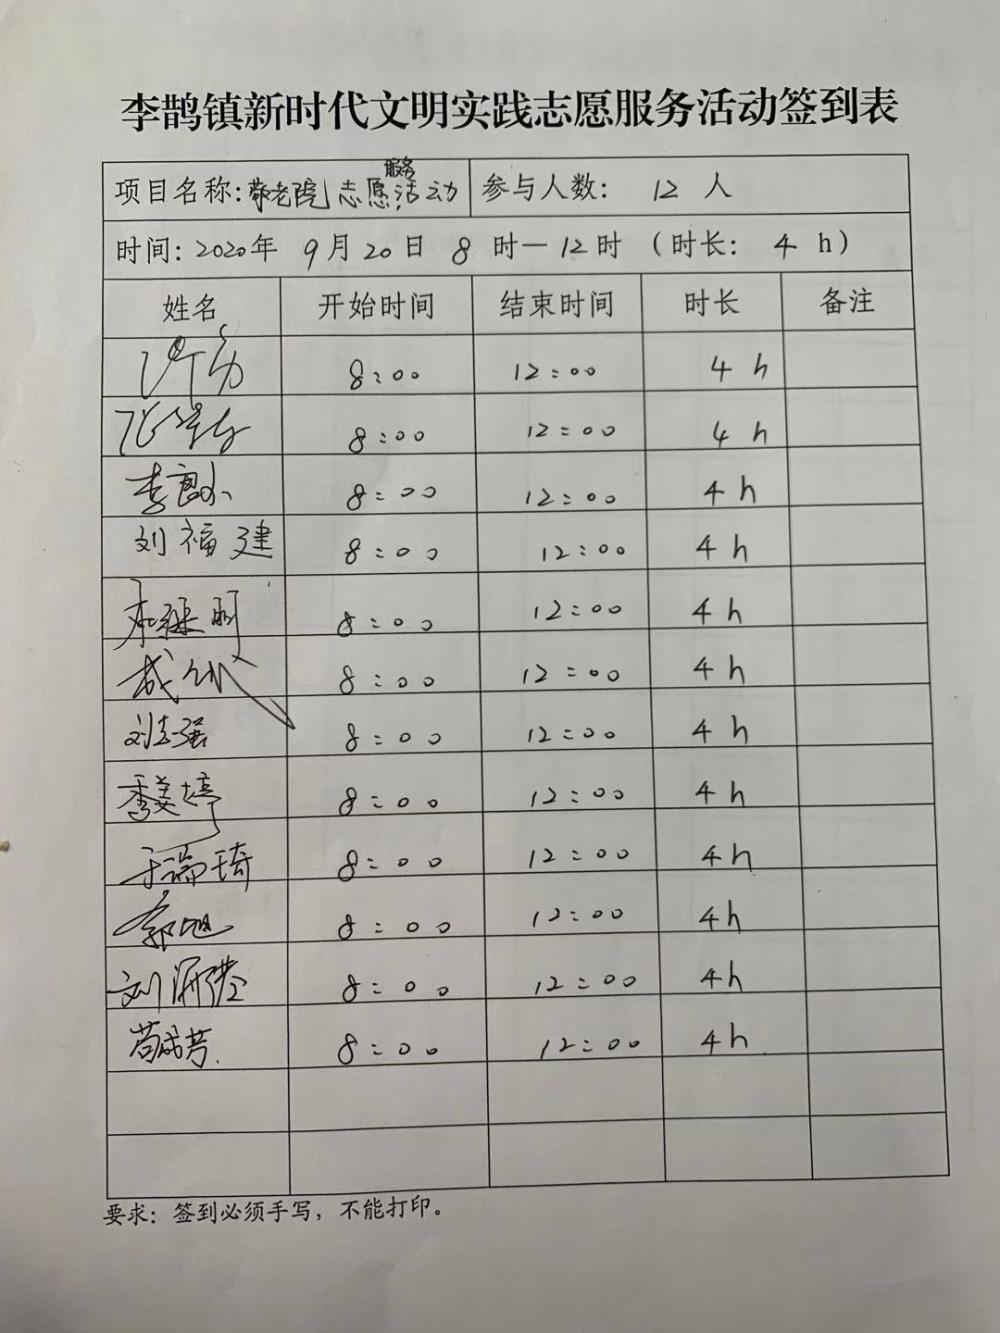 李鹊镇新时代文明实践志愿服务活动签到表
项目名称：敬老院志愿服务活动 参与人数： 12 人
时间：2020年 9月20日 8 时—12时 （时长： 4 h）
姓名 开始时间 结束时间 时长 备注
8:00 12:00 4 h
8:00 12:00 4 h
8:00 12:00 4h
刘福建 8:00 12:00 4h
8:00 12:00 4h
8:00 12:00 4h
刘志强 8:00 12:00 4h
李姜婷 8:00 12:00 4h
于瑞琦 8:00 12:00 4h
郭旭 8:00 12:00 4h
刘 8:00 12:00 4h
苟成芳 8:00 12:00 4h
要求：签到必须手写，不能打印。